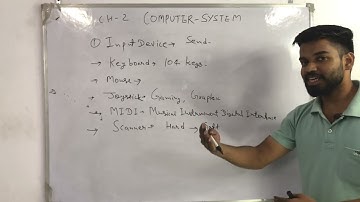 CH-2 COMPUTER-SYSTEM
① Input Device → Send.
→ Keyboard → 104 keys.
→ Mouse →
→ Joystick → Gaming, Graphic
→ MIDI → Musical Instrument Digital Interface
→ Scanner → Hard → Soft